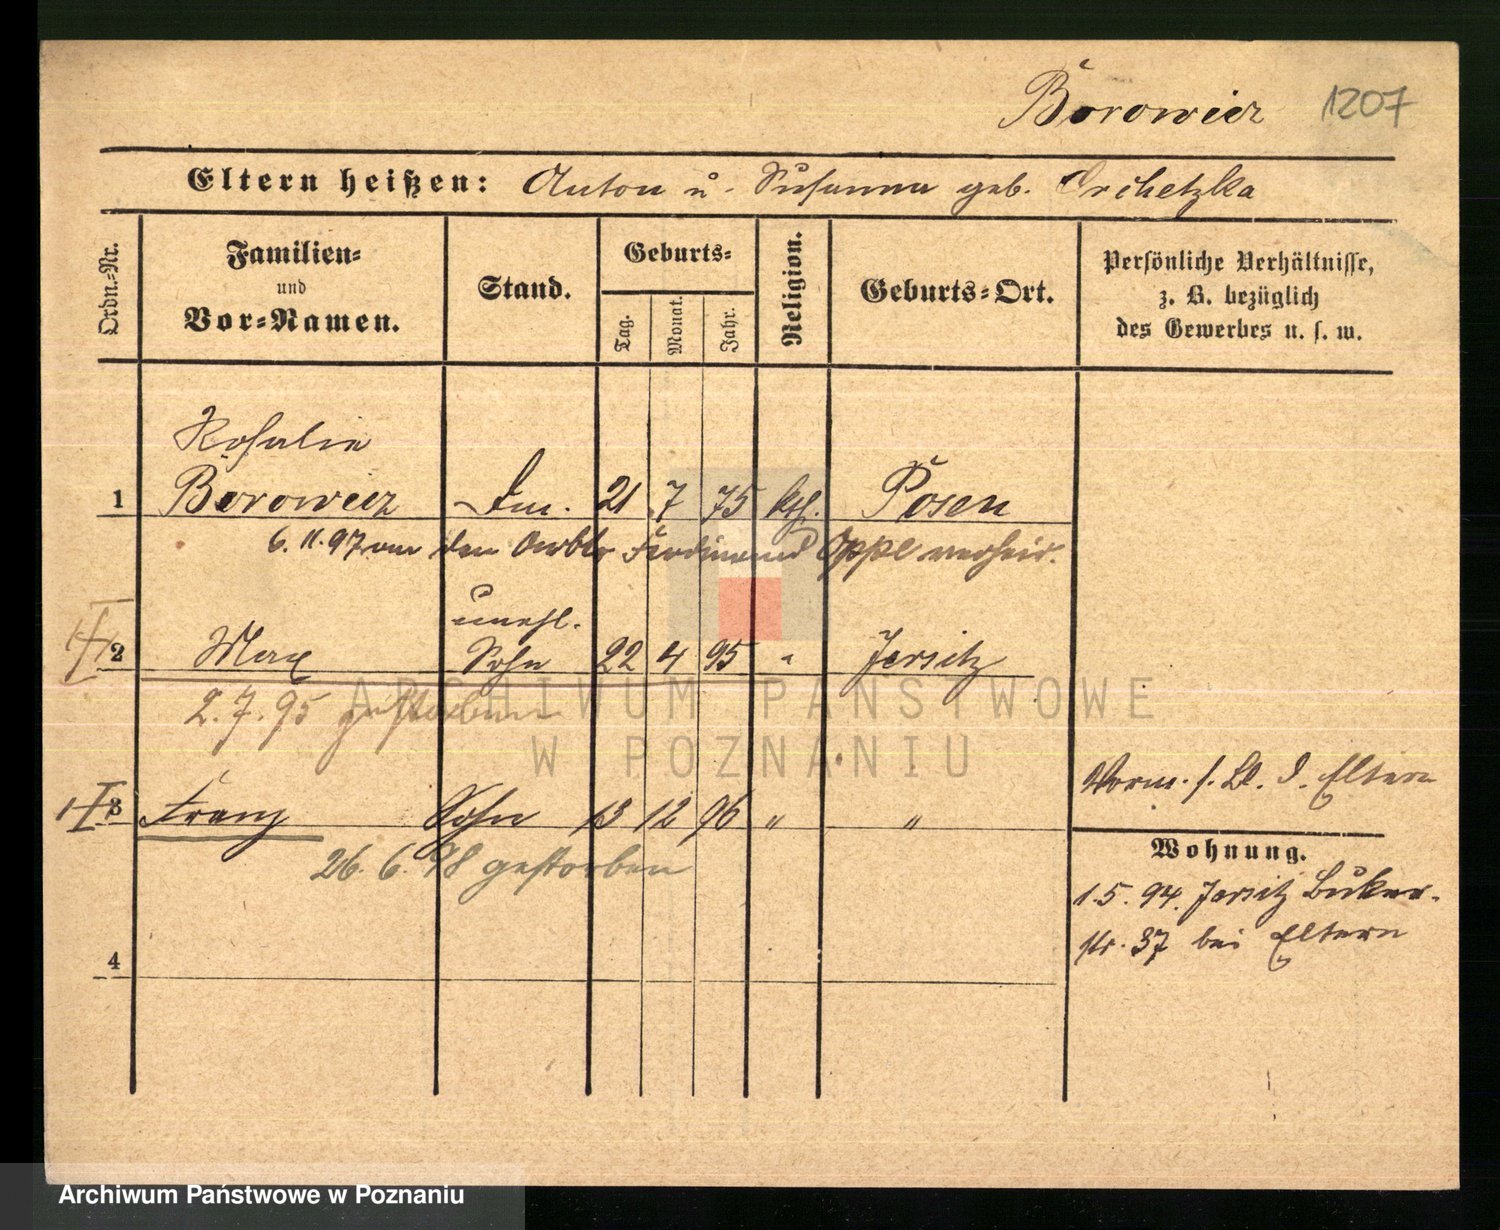 Borowicz 1207
Eltern heißen: Anton u. Susanna geb. Orchetzka
Ordn.-Nr.
Familien-
und
Vor-Namen.
Stand.
Geburts-
Tag.
Monat.
Jahr.
Religion.
Geburts-Ort.
Persönliche Verhältnisse,
z. B. bezüglich
des Gewerbes u. s. w.
Rosalie
1 Borowicz 21 7 75 kth. Posen
6.11.97 den Ferdinand Appl verheir.
unehl.
2 Max Sohn 22 4 95 " Jersitz
2.7.95 gestorben
ARCHIWUM PAŃSTWOWE
W POZNANIU
Vorm. s. Bl. d. Eltern
3 Franz Sohn 13 12 96 " "
26.6.98 gestorben
Wohnung.
1.5.94. Jersitz Buker-
str. 37 bei Eltern
4
Archiwum Państwowe w Poznaniu